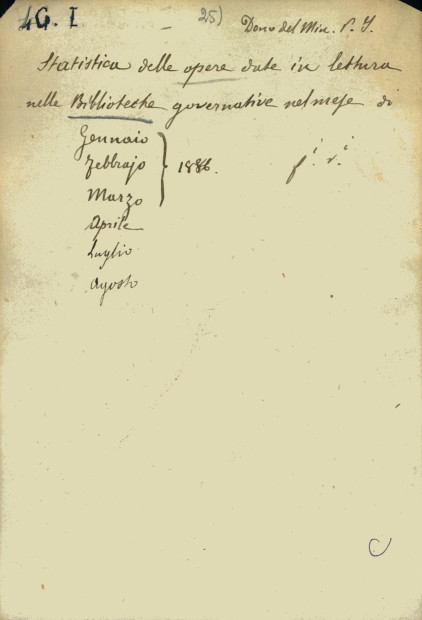 4G. I
25)
Dono del Min. P. I.
Statistica delle opere date in lettura
nelle Biblioteche governative nel mese di
Gennaio
Febbrajo 1886.
Marzo
Aprile
Luglio
Agosto